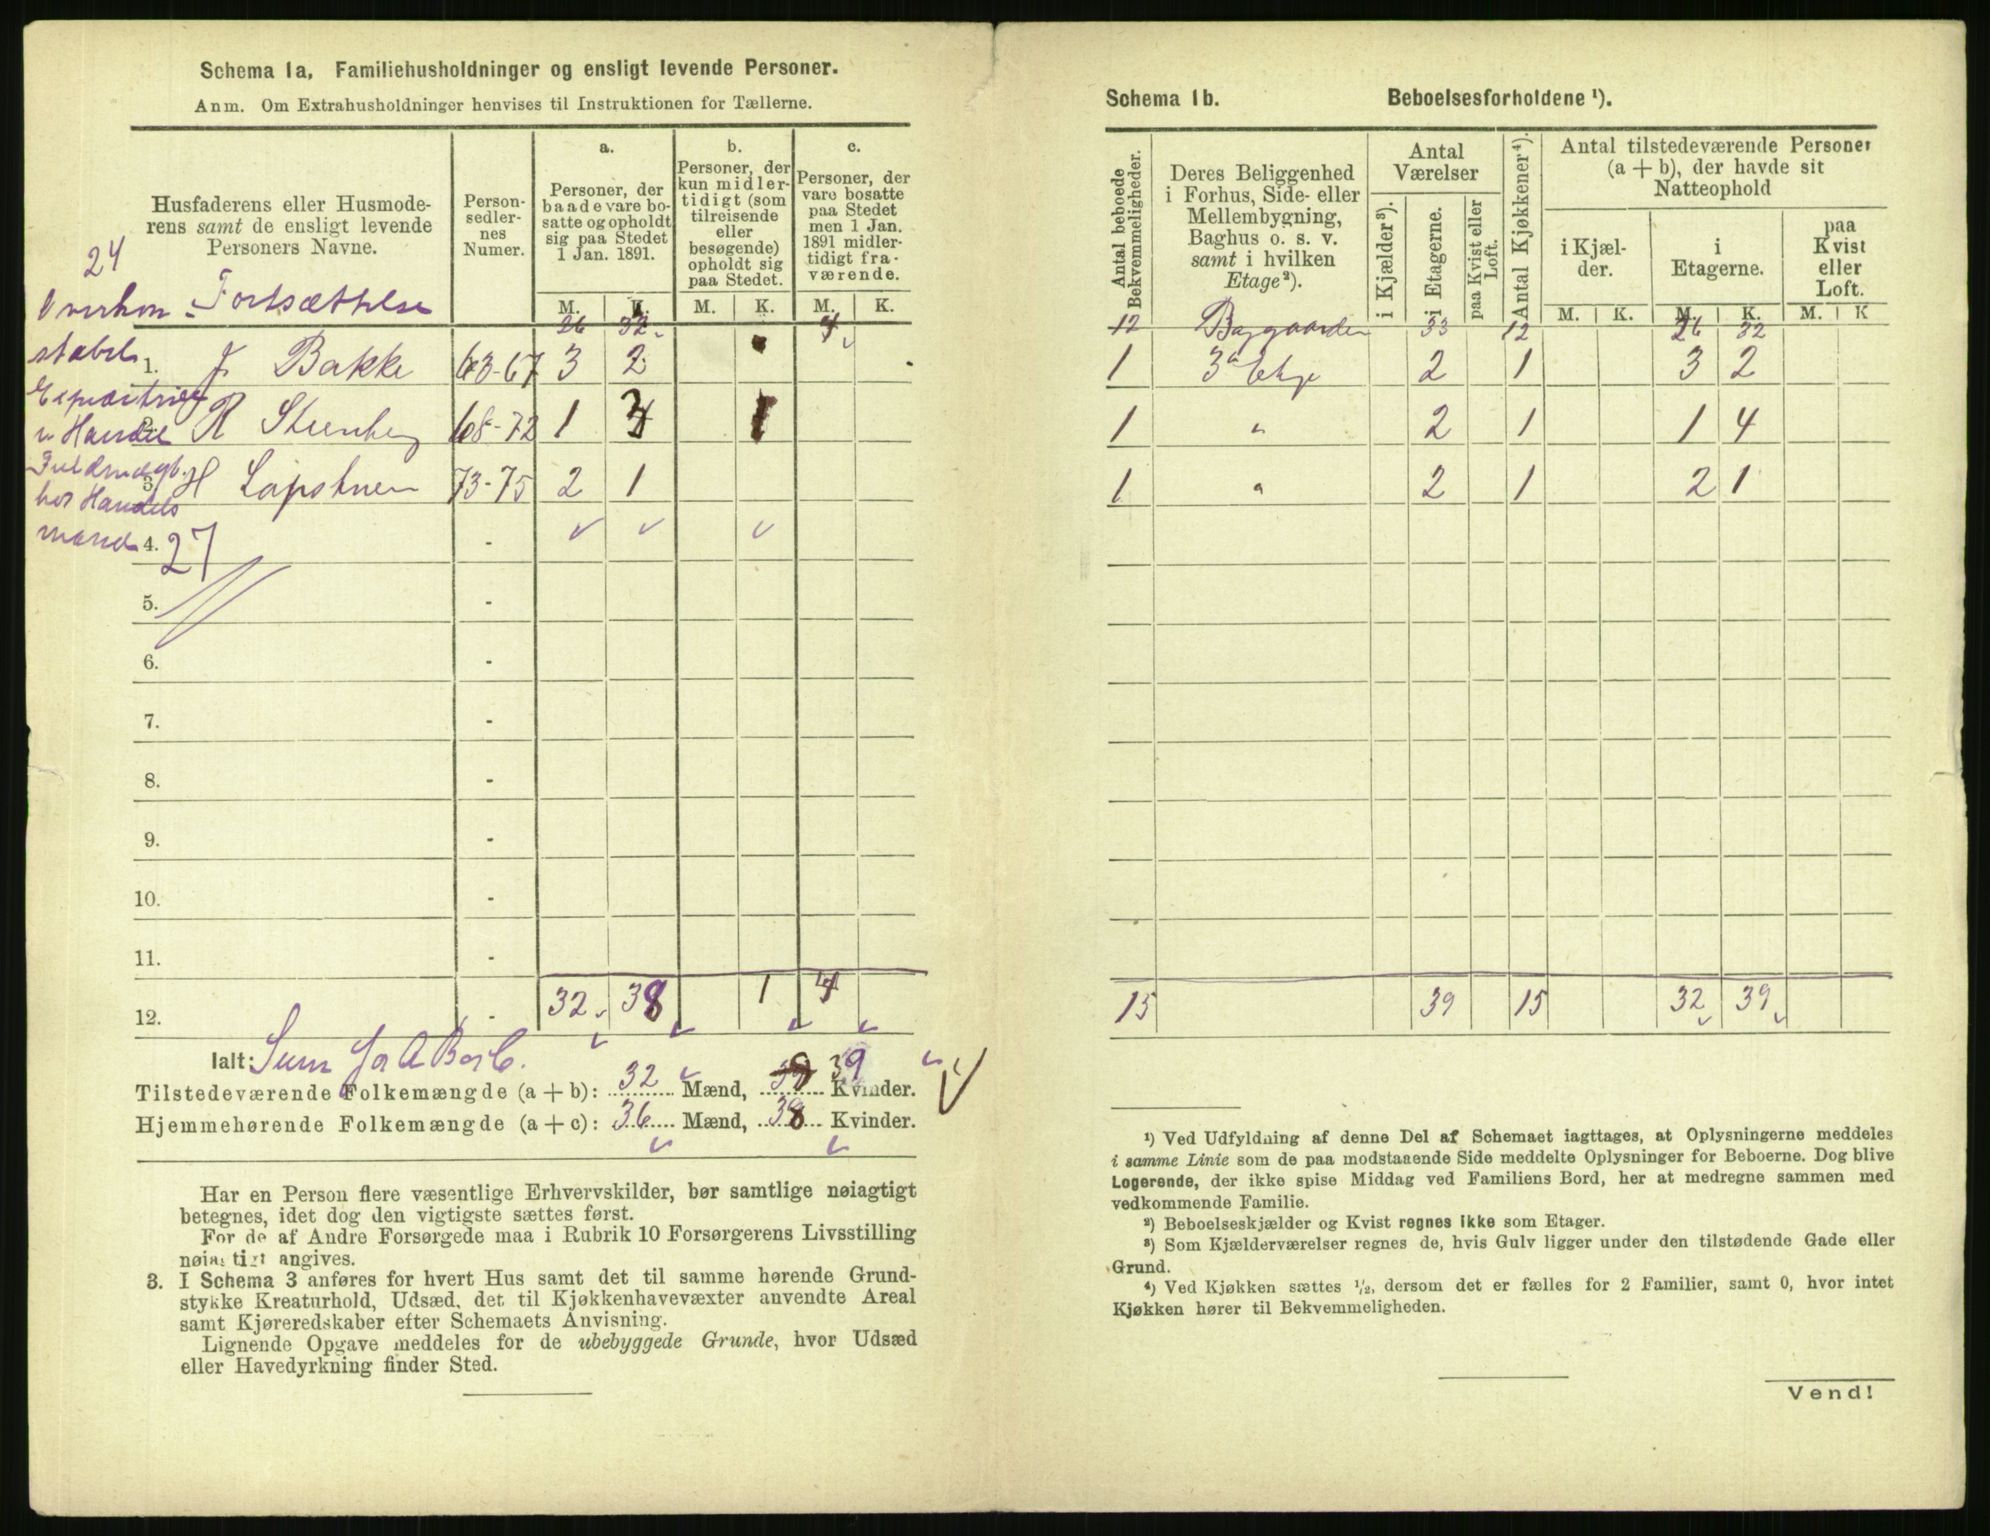 Schema 1a, Familiehusholdninger og ensligt levende Personer.
Anm. Om Extrahusholdninger henvises til Instruktionen for Tællerne.
Husfaderens eller Husmode-
rens samt de ensligt levende
Personers Navne.
Person-
sedler-
nes
Numer.
a.
Personer, der
baade vare bo-
satte og opholdt
sig paa Stedet
1 Jan. 1891.
b.
Personer, der
kun midler-
tidigt (som
tilreisende
eller
besøgende)
opholdt sig
paa Stedet.
c.
Personer, der
vare bosatte
paa Stedet
men 1 Jan.
1891 midler-
tidigt fra-
værende.
M. K. M. K. M. K.
24
Overkon
stabel
Expeditrice
v Handel
Fuldmægt.
hos Handels
mand
27
Fortsættelse 26 32 4
1. J. Bakke 63-67 3 2
2. R Steenberg 68-72 1 3 1
3. H 73-75 2 1
4. -
5. -
6. -
7. -
8. -
9. -
10. -
11. -
12. - 32 38 1 4
Ialt: Sum for A B og C.
Tilstedeværende Folkemængde (a + b): 32 Mænd, 39 Kvinder.
Hjemmehørende Folkemængde (a + c): 36 Mænd, 38 Kvinder.
Har en Person flere væsentlige Erhvervskilder, bør samtlige nøiagtigt
betegnes, idet dog den vigtigste sættes først.
For de af Andre Forsørgede maa i Rubrik 10 Forsørgerens Livsstilling
nøiagtigt angives.
3. I Schema 3 anføres for hvert Hus samt det til samme hørende Grund-
stykke Kreaturhold, Udsæd, det til Kjøkkenhavevæxter anvendte Areal
samt Kjøreredskaber efter Schemaets Anvisning.
Lignende Opgave meddeles for de ubebyggede Grunde, hvor Udsæd
eller Havedyrkning finder Sted.
Schema 1b. Beboelsesforholdene ¹).
Antal beboede
Bekvemmeligheder.
Deres Beliggenhed
i Forhus, Side- eller
Mellembygning,
Baghus o. s. v.
samt i hvilken
Etage²).
Antal
Værelser
i Kjælder³).
i Etagerne.
paa Kvist eller
Loft.
Antal Kjøkkener⁴).
Antal tilstedeværende Personer
(a + b), der havde sit
Natteophold
i Kjæl-
der.
i
Etagerne.
paa
Kvist
eller
Loft.
M. K. M. K. M. K
12 Baggaarden 33 12 26 32
1 3die Etage 2 1 3 2
1 " 2 1 1 4
1 " 2 1 2 1
15 39 15 32 39
¹) Ved Udfyldning af denne Del af Schemaet iagttages, at Oplysningerne meddeles
i samme Linie som de paa modstaaende Side meddelte Oplysninger for Beboerne. Dog blive
Logerende, der ikke spise Middag ved Familiens Bord, her at medregne sammen med
vedkommende Familie.
²) Beboelseskjælder og Kvist regnes ikke som Etager.
³) Som Kjælderværelser regnes de, hvis Gulv ligger under den tilstødende Gade eller
Grund.
⁴) Ved Kjøkken sættes ¹/₂, dersom det er fælles for 2 Familier, samt 0, hvor intet
Kjøkken hører til Bekvemmeligheden.
Vend!